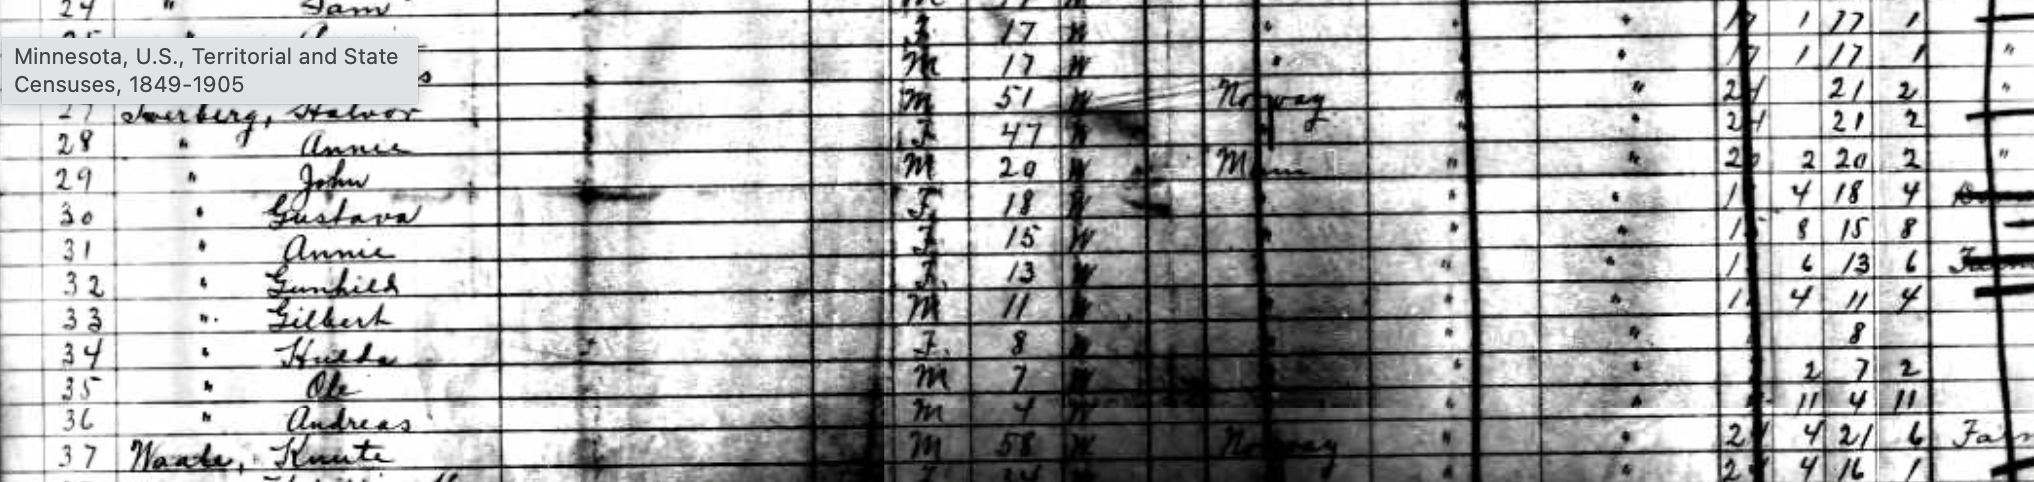 24 " Sam M W
25 F 17 W " " " 17 1 17 1
Minnesota, U.S., Territorial and State
Censuses, 1849-1905
M 17 W " " " 17 1 17 1 "
27 Sverberg, Halvor M 51 W Norway " " 21 21 2 "
28 " Annie F 47 W " " " 21 21 2
29 " John M 20 W Minn " " 20 2 20 2 "
30 " Gustava F 18 W " " " 18 4 18 4
31 " Annie F 15 W " " " 15 8 15 8
32 " Gunhild F 13 W " " " 13 6 13 6
33 " Gilbert M 11 W " " " 11 4 11 4
34 " Hulda F 8 W " " " 8
35 " Ole M 7 W " " " 2 7 2
36 " Andreas M 4 W " " " 11 4 11
37 Waale, Knute M 58 W Norway " " 4 21 6 Farm
" 4 16 1